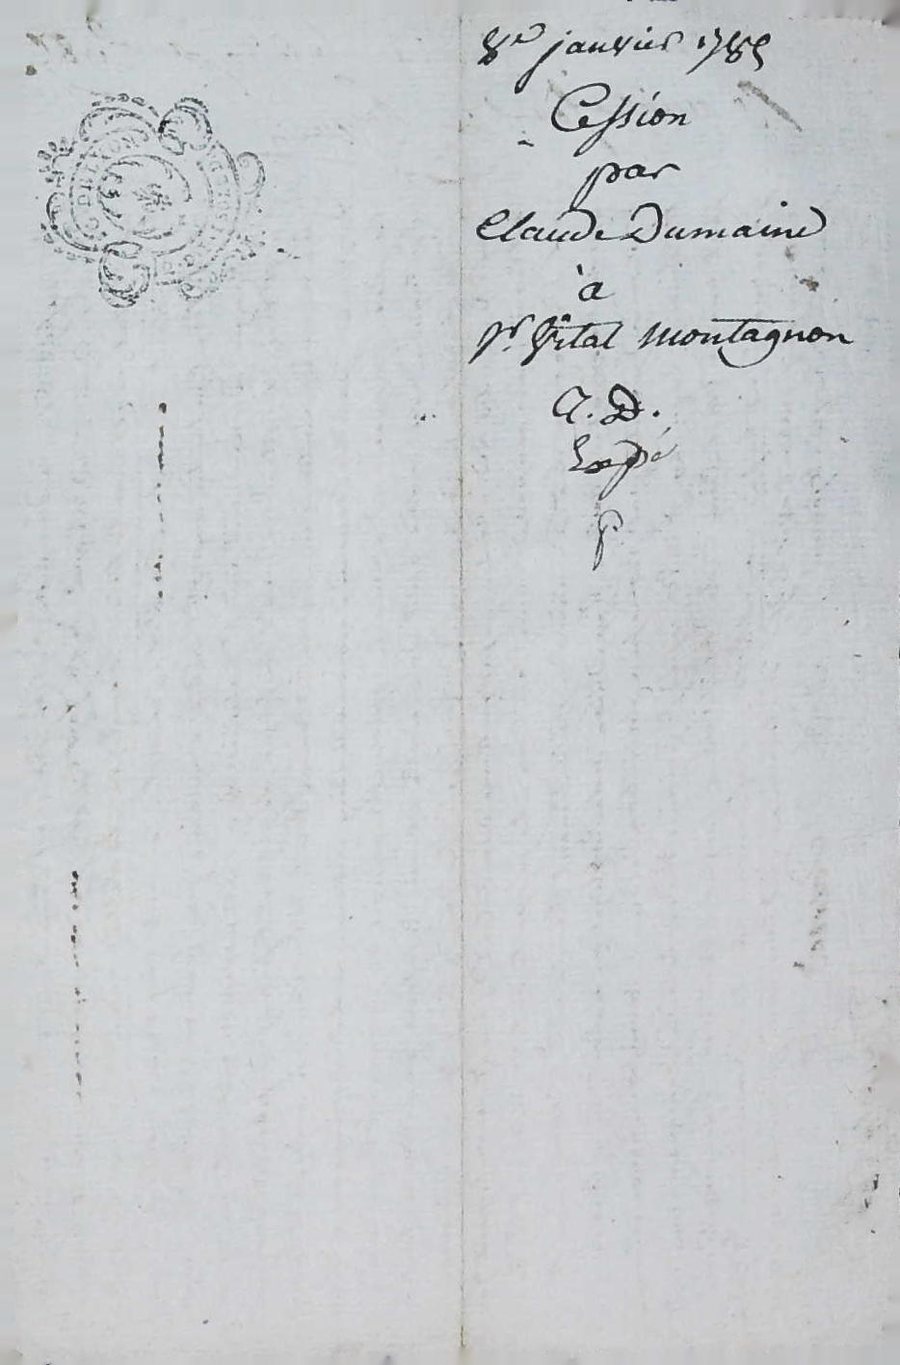 8e janvier 1785
Cession
par
Claude Dumaine
à
pr. Vital Montagnon
C. D.
Expé